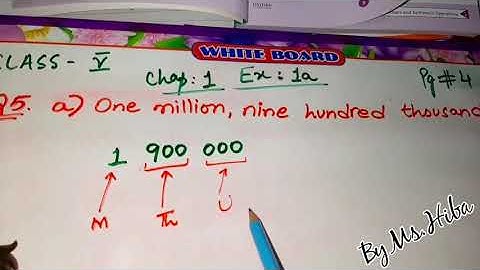 WHITE BOARD
CLASS - V
Chap: 1 Ex: 1a
Pg # 4
Q5. a) One million, nine hundred thousand
1 900 000
M Th U
By Ms. Hiba